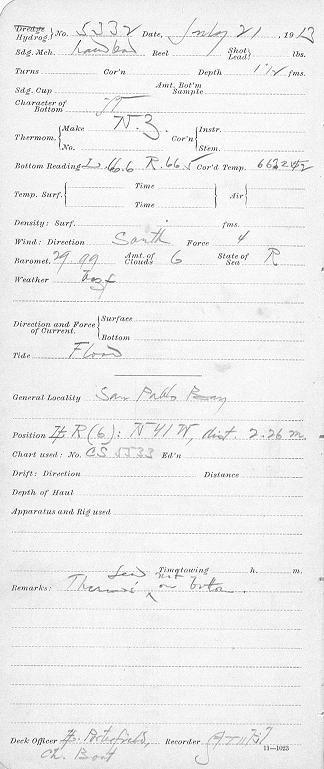 Dredge
Hydrog} No. 5332 Date, July 21, 1913
Sdg. Mch. Reel Shot} Lead} lbs.
Turns Cor'n Depth 1 1/2 fms.
Sdg. Cup Amt. Bot'm Sample
Character of Bottom
Thermom. {Make N.Z. Cor'n {Instr.
{No. {Stem.
Bottom Reading L. 66.6 R. 66.5 Cor'd Temp.
Temp. Surf. {Time Air {
{Time
Density: Surf. fms.
Wind: Direction South Force 4
Baromet. 29.99 Amt. of Clouds 6 State of Sea R
Weather
Direction and Force of Current. {Surface
{Bottom
Tide Flood
General Locality San Pablo Bay
Position R (6): N 41 W, dist. 2.26 m.
Chart used: No. CS 5533 Ed'n
Drift: Direction Distance
Depth of Haul
Apparatus and Rig used
Time towing h. m.
Remarks: not on bottom.
Deck Officer Recorder
Ch. Boat 11—1023